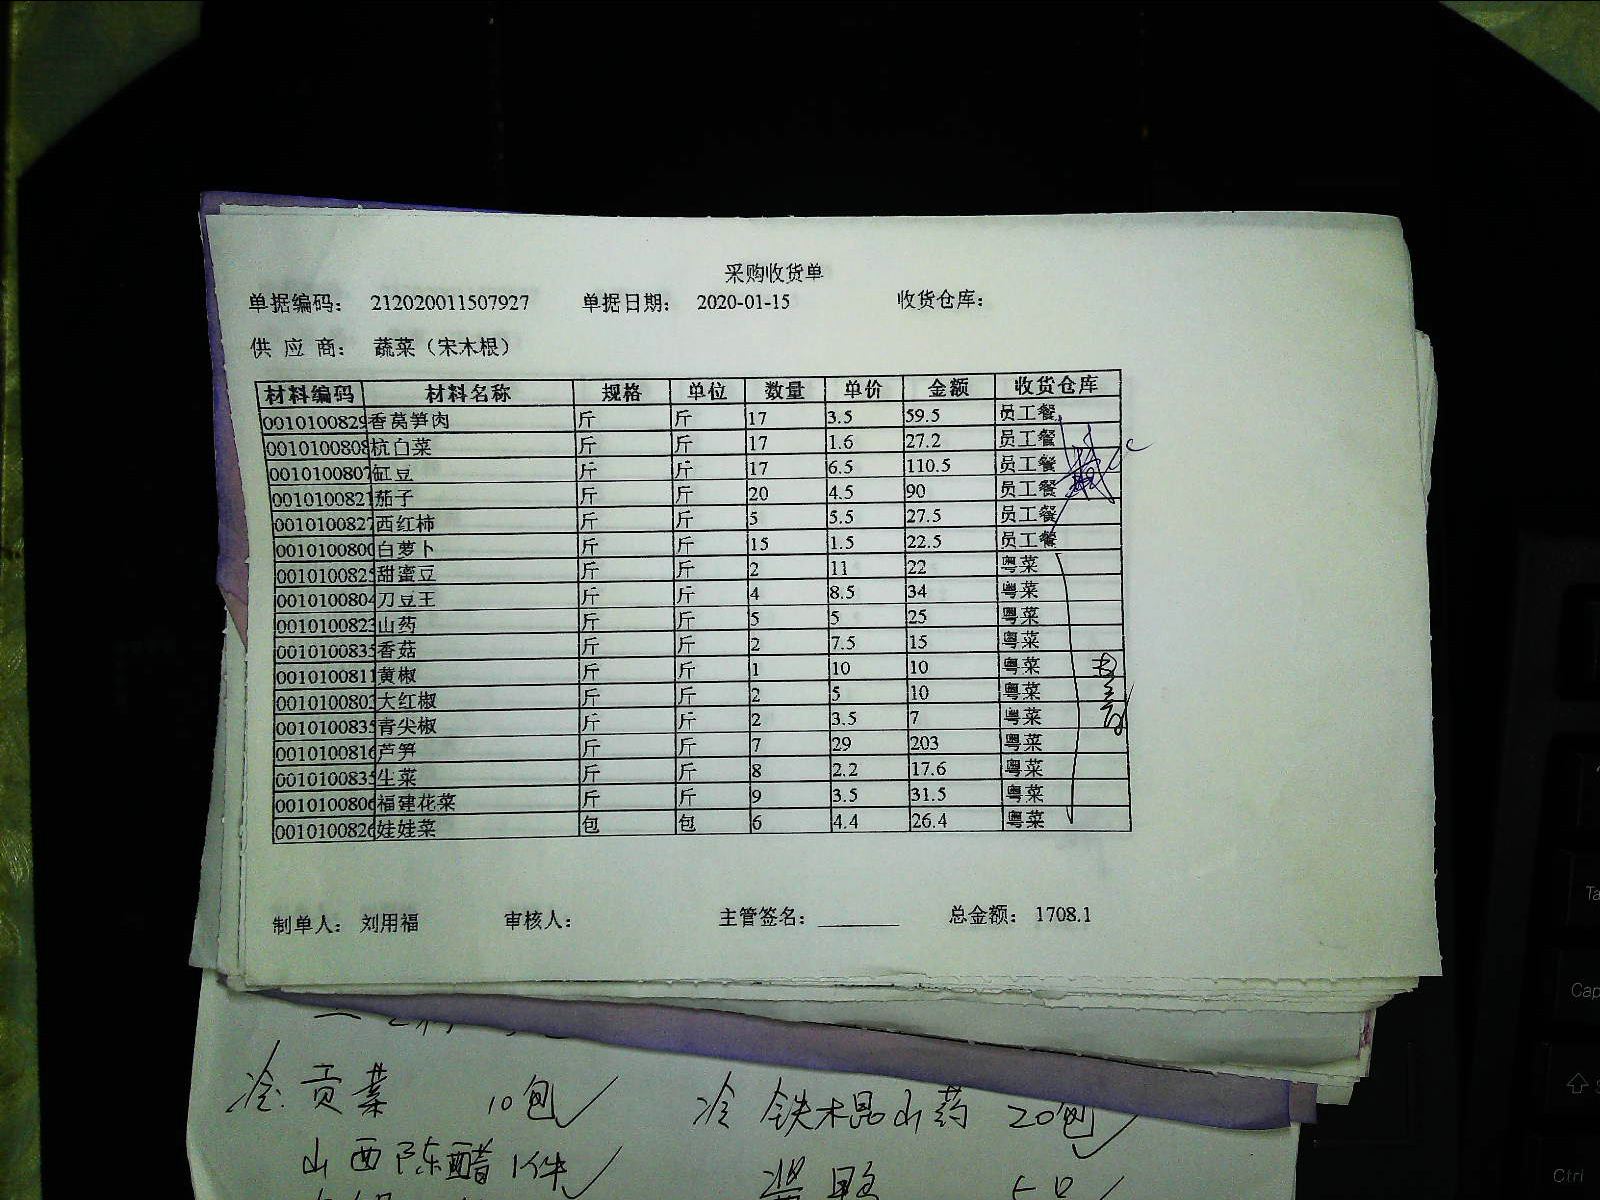 采购收货单
单据编码： 212020011507927 单据日期： 2020-01-15 收货仓库：
供 应 商： 蔬菜（宋木根）
材料编码 材料名称 规格 单位 数量 单价 金额 收货仓库
0010100829 香莴笋肉 斤 斤 17 3.5 59.5 员工餐
0010100808 杭白菜 斤 斤 17 1.6 27.2 员工餐
0010100807 缸豆 斤 斤 17 6.5 110.5 员工餐
0010100821 茄子 斤 斤 20 4.5 90 员工餐
0010100827 西红柿 斤 斤 5 5.5 27.5 员工餐
0010100800 白萝卜 斤 斤 15 1.5 22.5 员工餐
0010100825 甜蜜豆 斤 斤 2 11 22 粤菜
0010100804 刀豆王 斤 斤 4 8.5 34 粤菜
0010100823 山药 斤 斤 5 5 25 粤菜
0010100835 香菇 斤 斤 2 7.5 15 粤菜
0010100811 黄椒 斤 斤 1 10 10 粤菜
0010100803 大红椒 斤 斤 2 5 10 粤菜
0010100835 青尖椒 斤 斤 2 3.5 7 粤菜
0010100816 芦笋 斤 斤 7 29 203 粤菜
0010100835 生菜 斤 斤 8 2.2 17.6 粤菜
0010100806 福建花菜 斤 斤 9 3.5 31.5 粤菜
0010100826 娃娃菜 包 包 6 4.4 26.4 粤菜
制单人： 刘用福 审核人： 主管签名： 总金额： 1708.1
冷 贡菜 10包 冷 铁木昆山药 20包
山西陈醋 1件
Ta
Cap
Ctrl